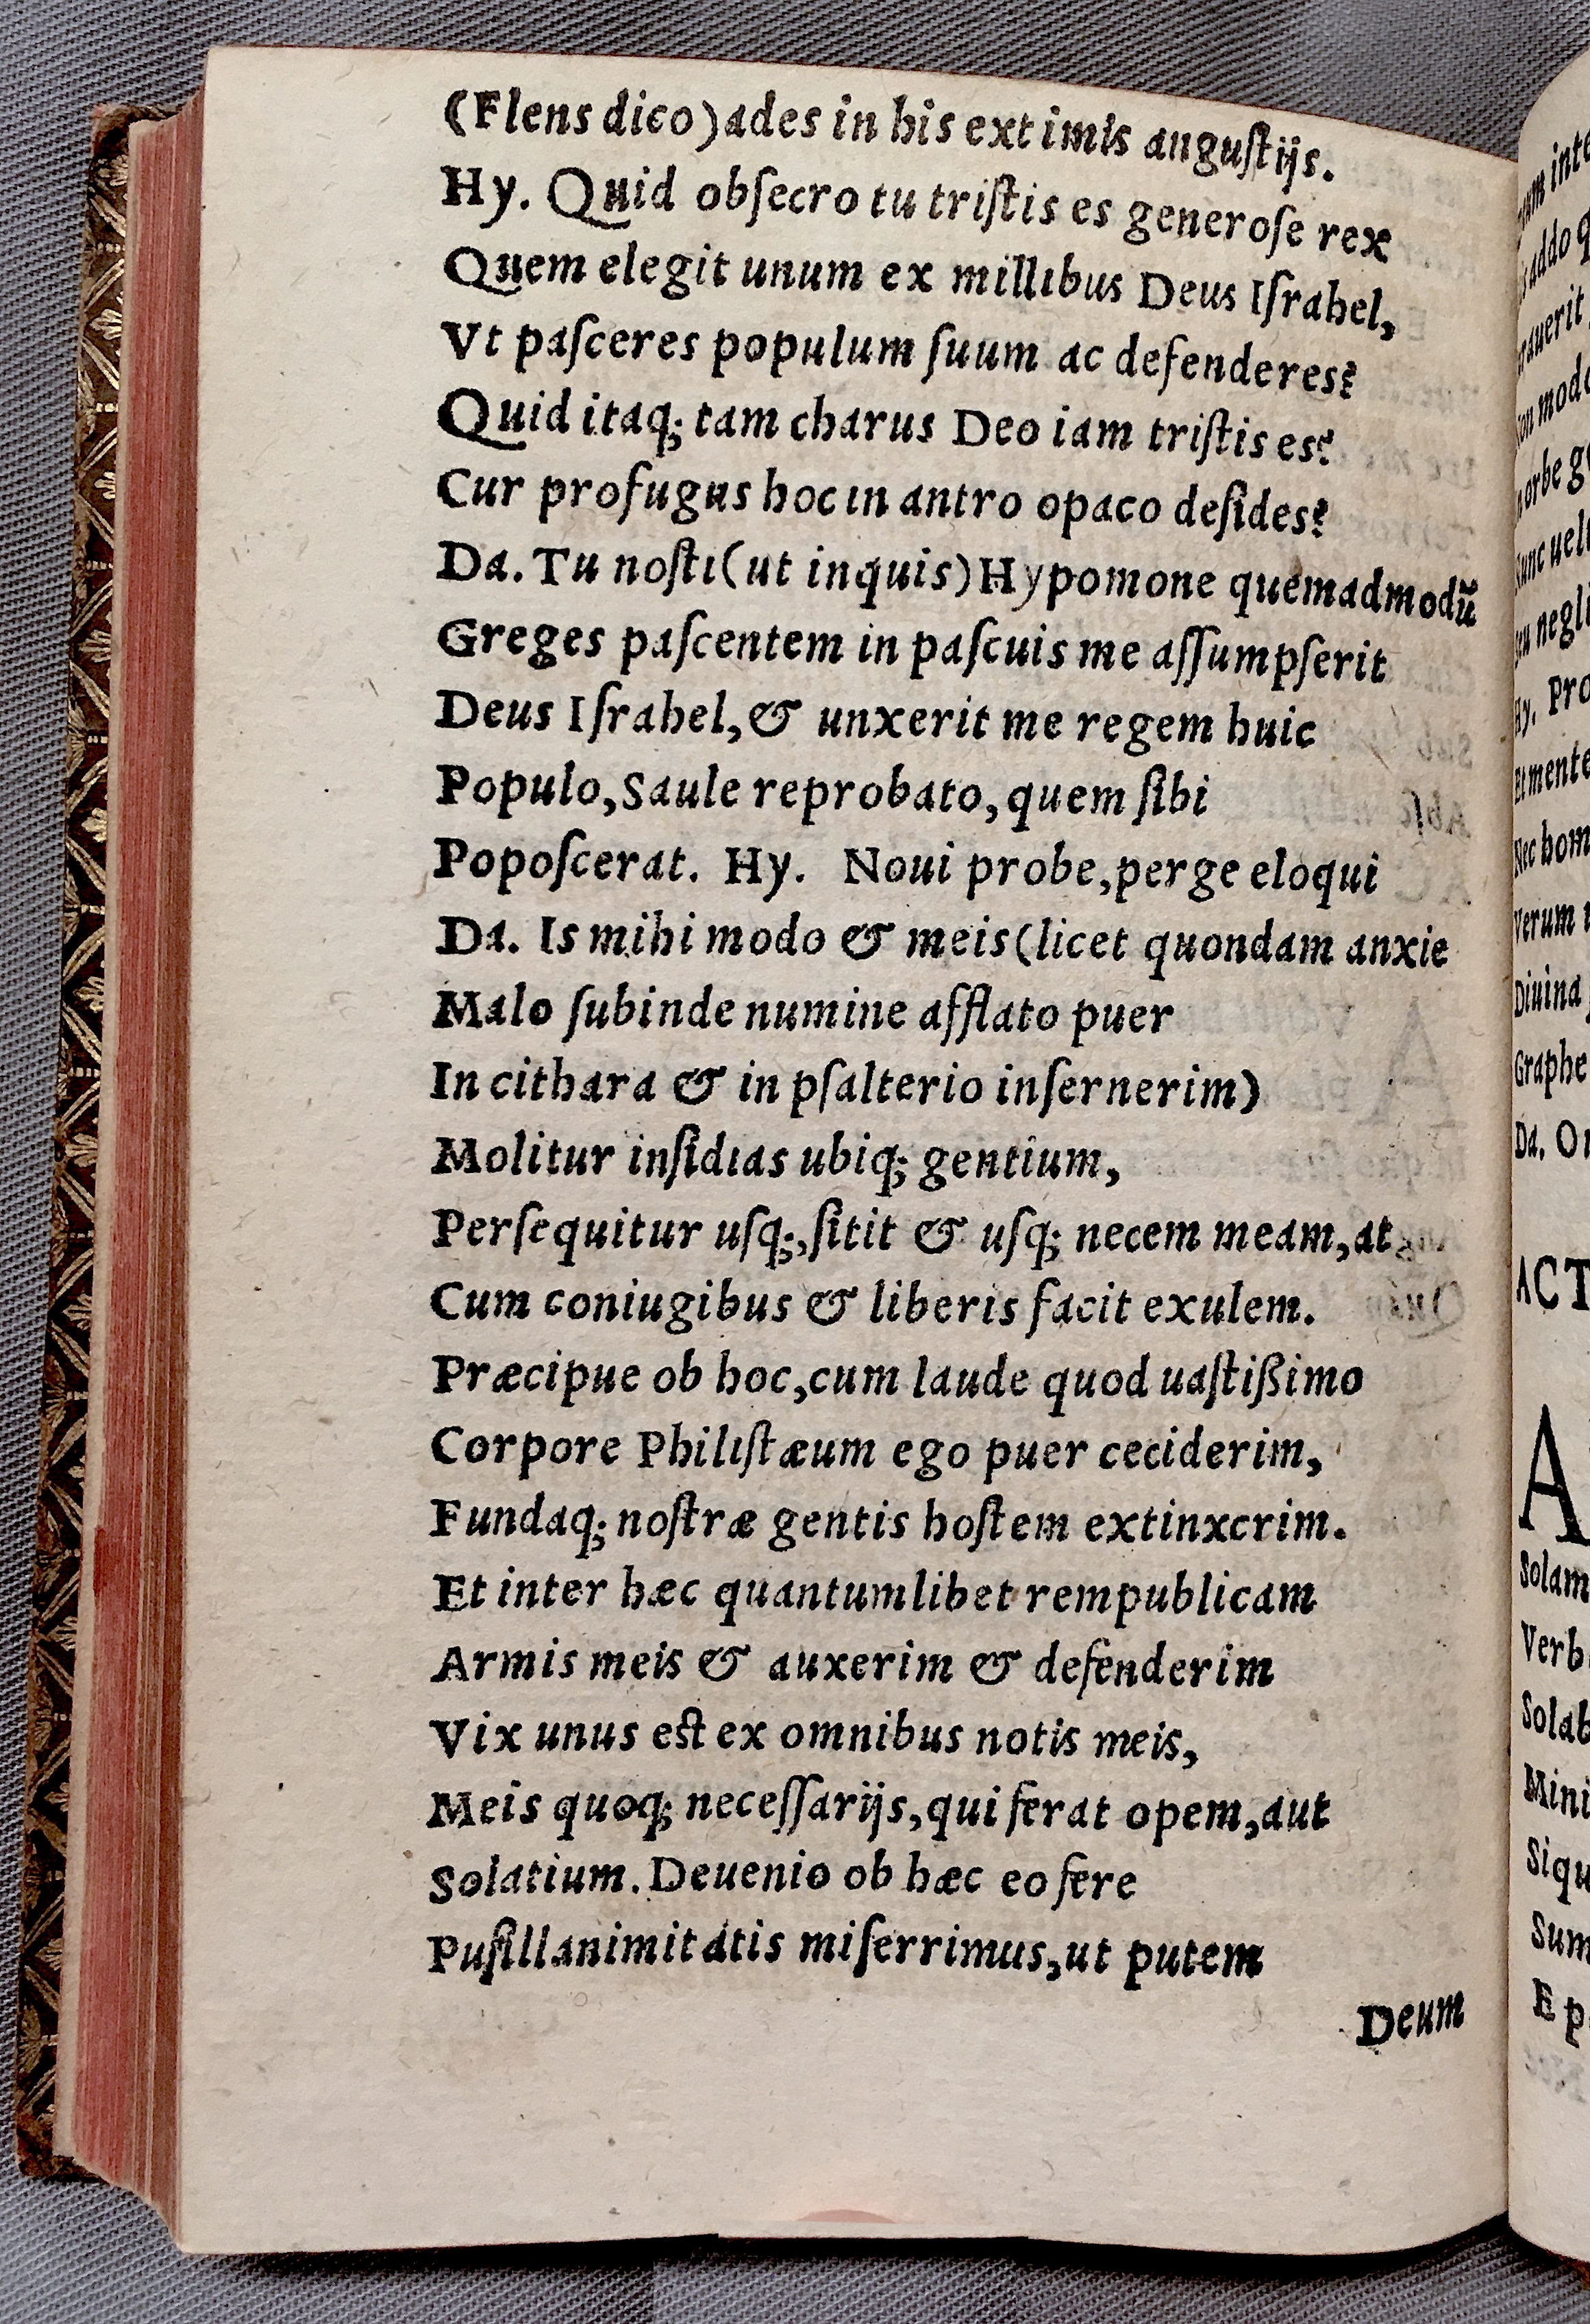 (Flens dico)ades in his extimis angustijs.
Hy. Quid obſecro tu triſtis es generoſe rex
Quem elegit unum ex millibus Deus Iſrahel,
Vt paſceres populum ſuum ac defenderes?
Quid itaq; tam charus Deo iam triſtis es?
Cur profugus hoc in antro opaco deſides?
Da. Tu noſti(ut inquis)Hypomone quemadmodũ
Greges paſcentem in paſcuis me aſſumpſerit
Deus Iſrahel,& unxerit me regem huic
Populo,Saule reprobato,quem ſibi
Popoſcerat. Hy. Noui probe,perge eloqui
Da. Is mihi modo & meis(licet quondam anxie
Malo ſubinde numine afflato puer
In cithara & in pſalterio inſernerim)
Molitur inſidias ubiq; gentium,
Perſequitur uſq;,ſitit & uſq; necem meam,at
Cum coniugibus & liberis facit exulem.
Præcipue ob hoc,cum laude quod uaſtißimo
Corpore Philiſtæum ego puer ceciderim,
Fundaq; noſtræ gentis hoſtem extinxcrim.
Et inter hæc quantumlibet rempublicam
Armis meis & auxerim & defenderim
Vix unus eſt ex omnibus notis meis,
Meis quoq; neceſſarijs,qui ferat opem,aut
Solatium. Deuenio ob hæc eo fere
Puſillanimitatis miſerrimus,ut putem
Deum
ACT
A
Solam
Verb
Solab
Mini
Siqu
Sum
E p